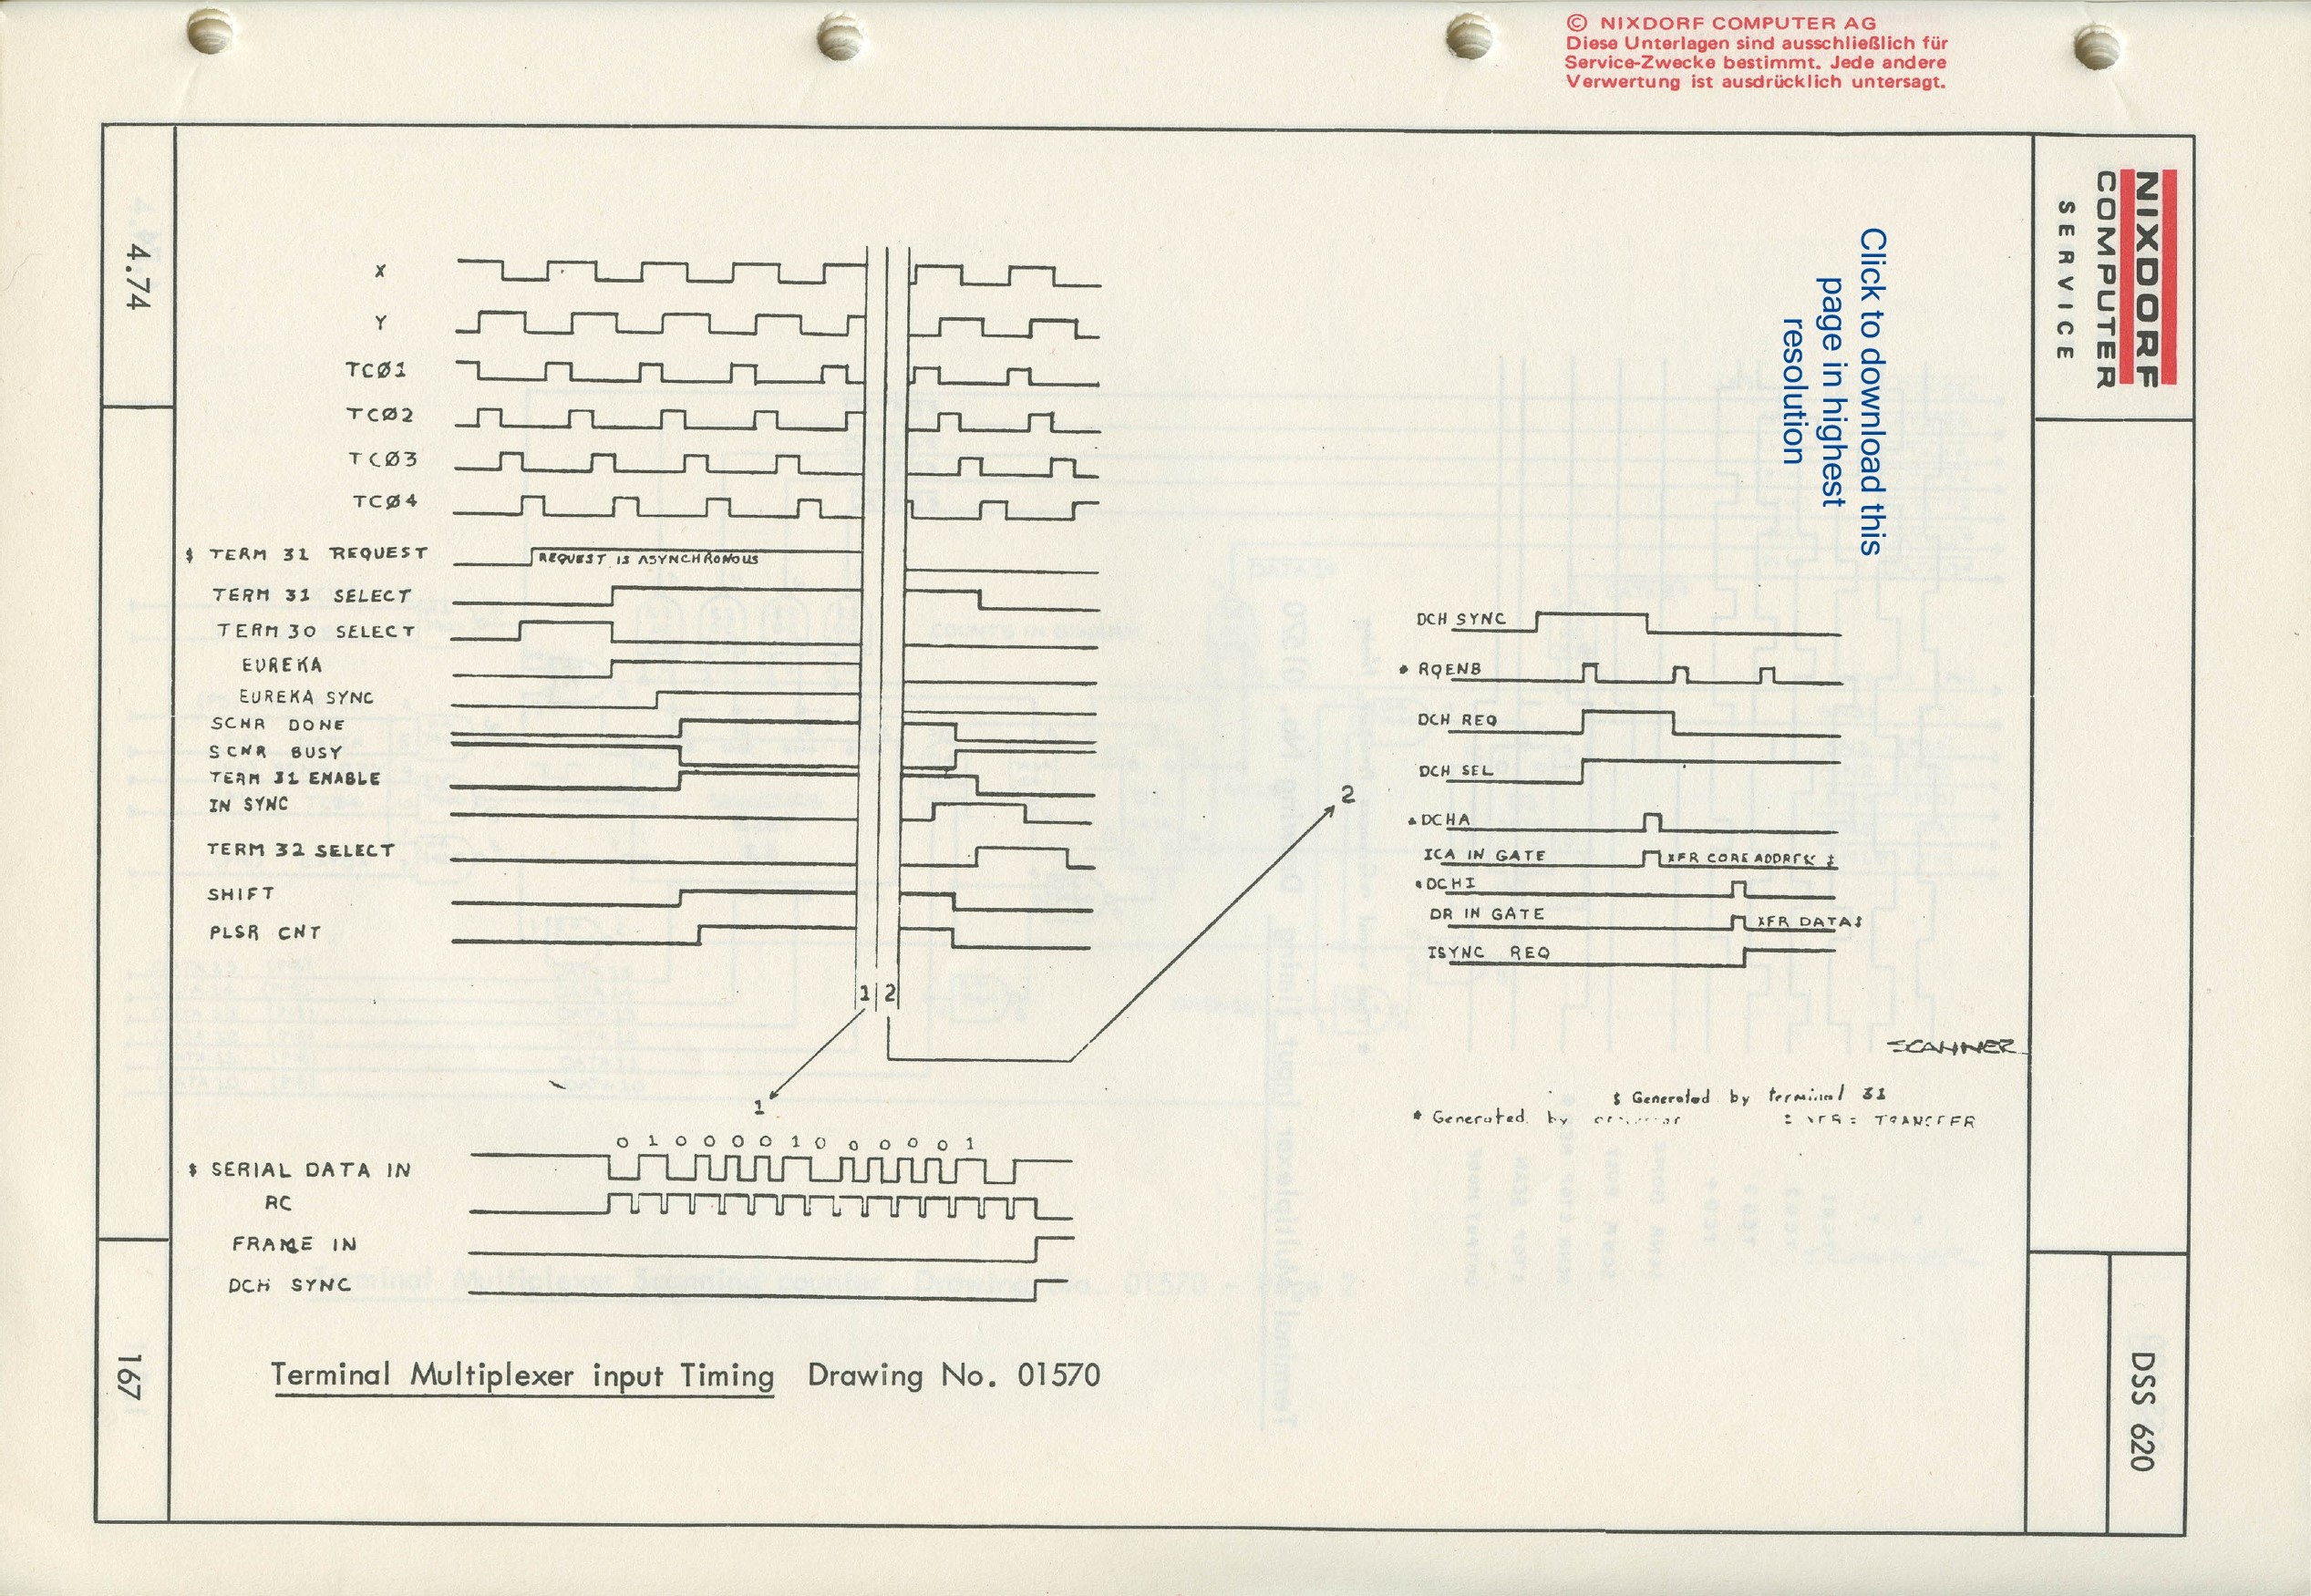 © NIXDORF COMPUTER AG
Diese Unterlagen sind ausschließlich für
Service-Zwecke bestimmt. Jede andere
Verwertung ist ausdrücklich untersagt.
NIXDORF
COMPUTER
SERVICE
4.74
Click to download this
page in highest
resolution
X
Y
TCØ1
TCØ2
TCØ3
TCØ4
$ TERM 31 REQUEST
REQUEST IS ASYNCHRONOUS
TERM 31 SELECT
TERM 30 SELECT
EUREKA
EUREKA SYNC
SCNR DONE
SCNR BUSY
TERM 31 ENABLE
IN SYNC
TERM 32 SELECT
SHIFT
PLSR CNT
1 2
DCH SYNC
* RQENB
DCH REQ
DCH SEL
2
* DCHA
ICA IN GATE XFR CORE ADDRESS ‡
* DCHI
DR IN GATE XFR DATA ‡
ISYNC REQ
SCANNER
$ Generated by terminal 31
* Generated by
= TRANSFER
1
0 1 0 0 0 0 1 0 0 0 0 0 1
$ SERIAL DATA IN
RC
FRAME IN
DCH SYNC
Terminal Multiplexer input Timing Drawing No. 01570
167
DSS 620